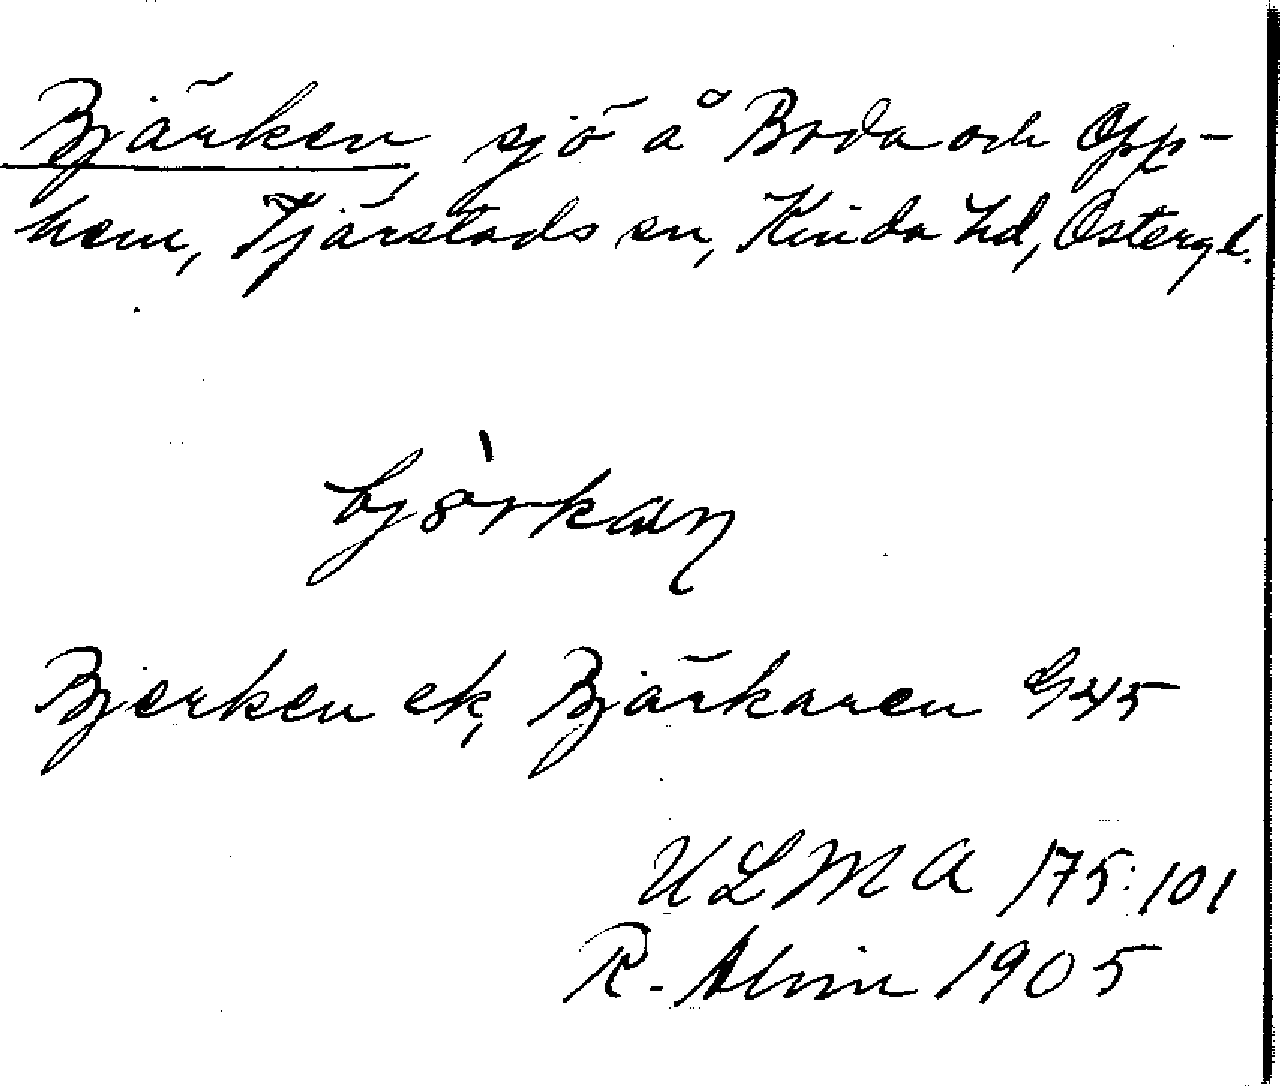 Bjärken, sjö å Boda och Opp-
hem, Tjärstads sn, Kinda hd, Östergl.
Bjerken ek, Bjärkaren G45
ULMA 175:101
R. Almin 1905